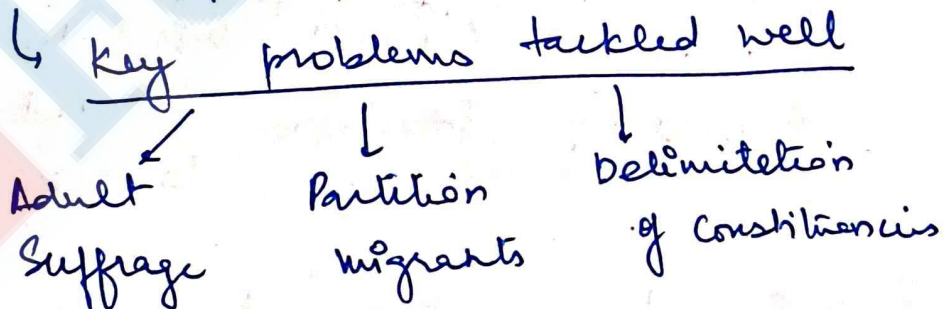 ↳ Key problems tackled well
Adult Suffrage
Partition migrants
Delimitation of constituencies